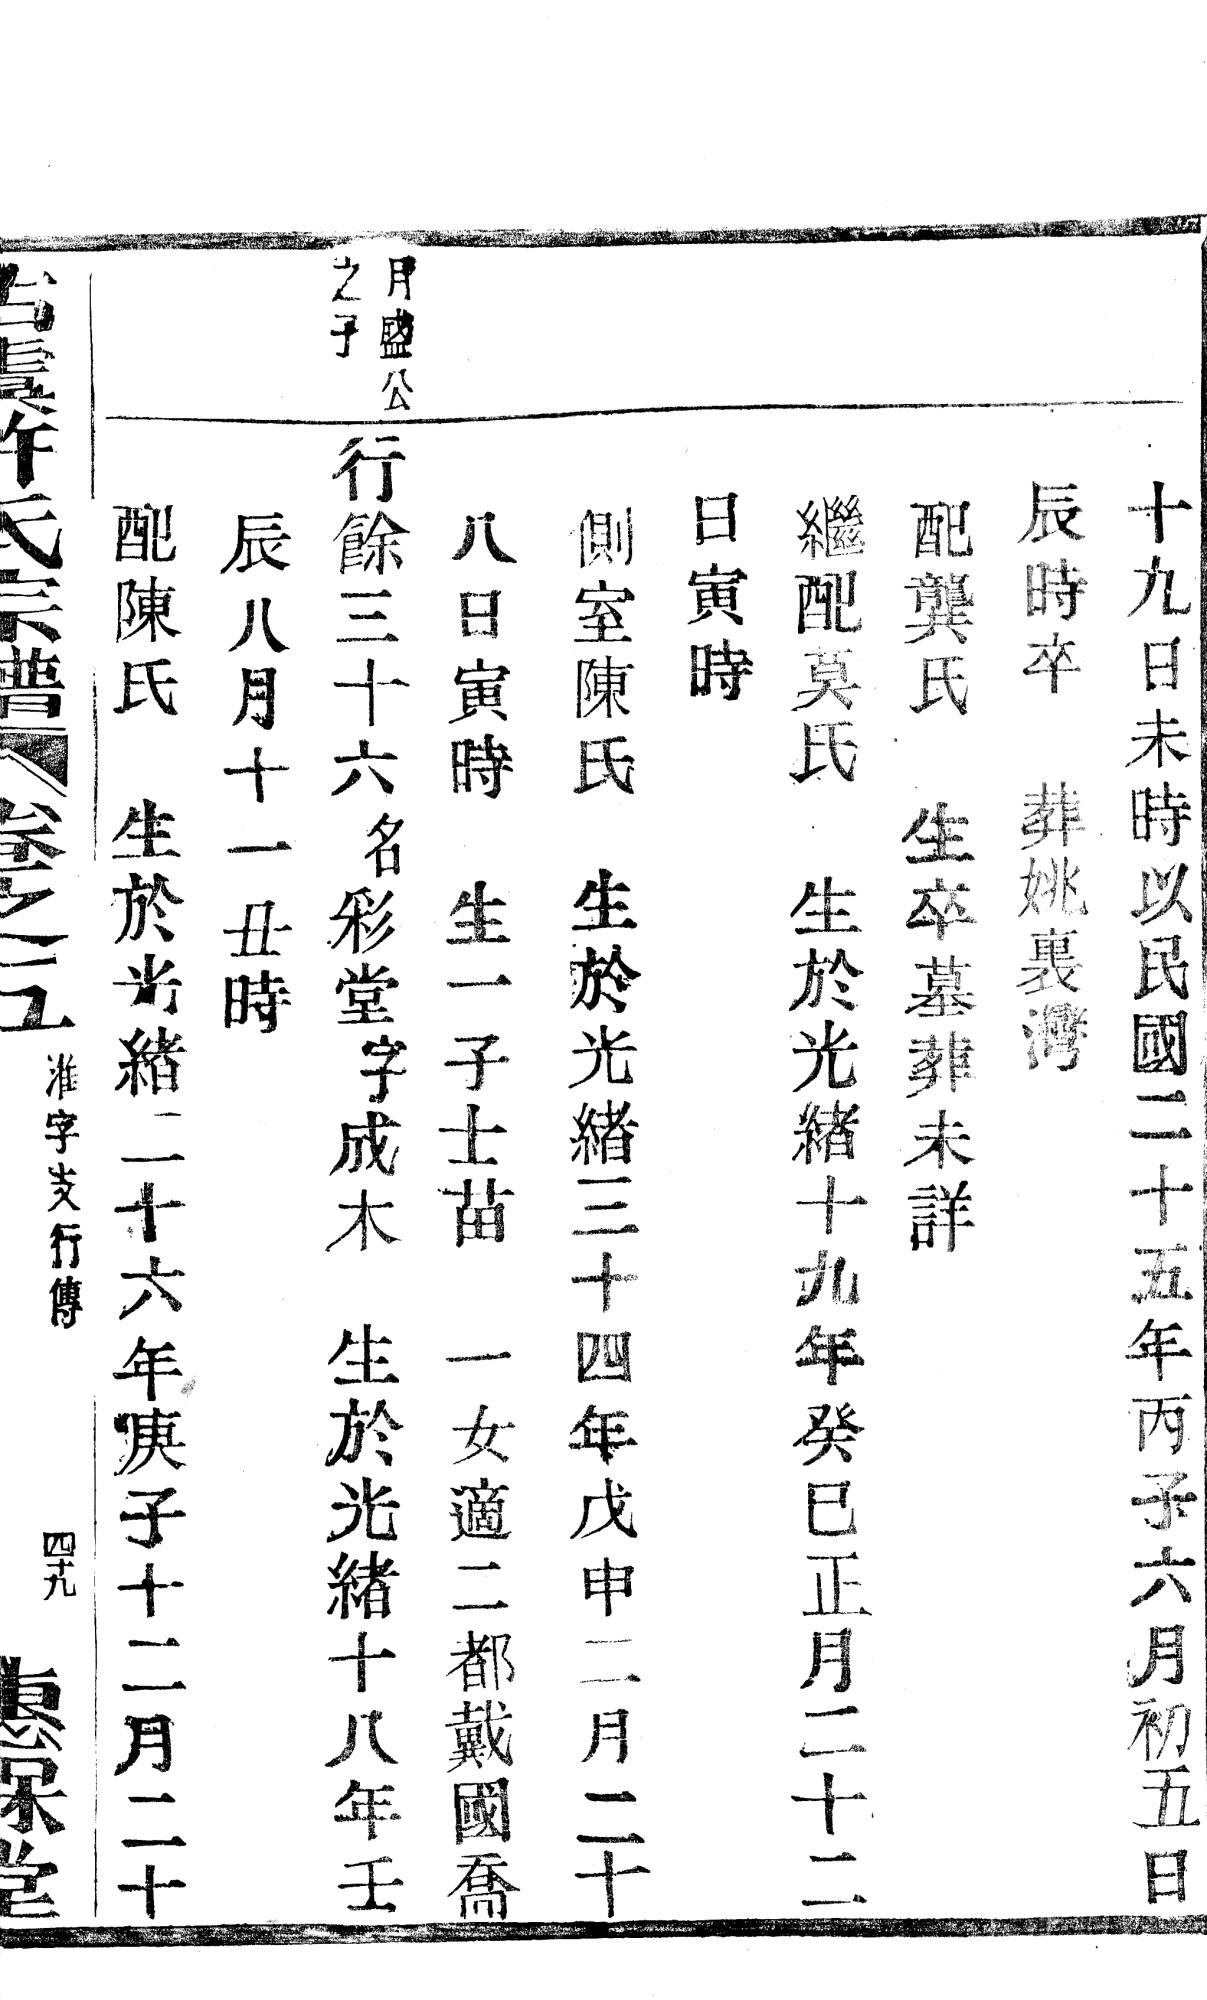 十九日未時以民國二十五年丙子六月初五日
辰時卒 葬姚裏灣
配龔氏 生卒墓葬未詳
繼配莫氏 生於光緒十九年癸巳正月二十二
日寅時
側室陳氏 生於光緒三十四年戊申二月二十
八日寅時 生一子士苗 一女適二都戴國喬
月盛公
之子
行餘三十六名彩堂字成木 生於光緒十八年壬
辰八月十一丑時
配陳氏 生於光緒二十六年庚子十二月二十
古虞許氏宗譜 卷之二五
淮字支行傳
四十九
惠保堂